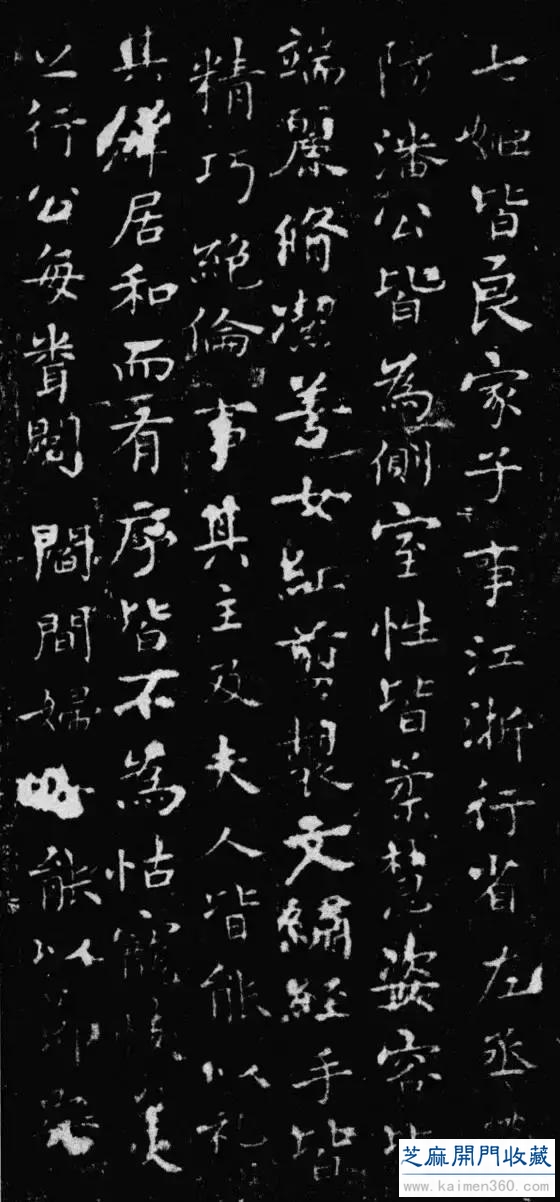 七姬皆良家子事江浙行省左丞
防潘公皆為側室性皆柔慧姿容皆
端麗脩潔善女紅剪製文繡經手皆
精巧絕倫事其主及夫人皆能以礼
其儕居和而有序皆不為怙寵忮美
之行公每聞閭閻間婦能以節
芝麻開門收藏
www.kaimen360.com